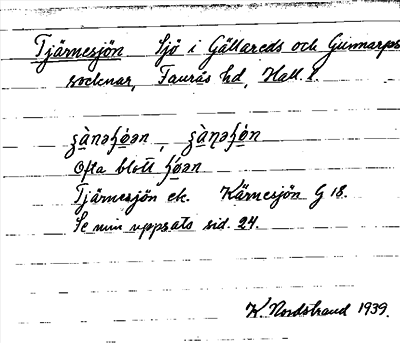 Tjärnesjön Sjö i Gällareds och Gunnarps
socknar, Faurås hd, Hall. l.
Ofta blott
Tjärnesjön ek. Kärnesjön G 18.
Se min uppsats sid. 24.
K. Nordstrand 1939.